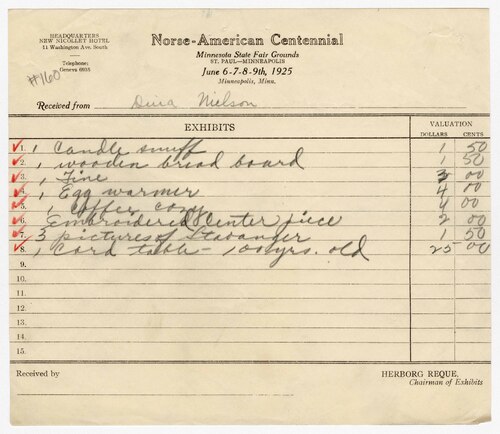 HEADQUARTERS
NEW NICOLLET HOTEL
11 Washington Ave. South
Telephone:
Geneva 6935
#160
Norse-American Centennial
Minnesota State Fair Grounds
ST. PAUL—MINNEAPOLIS
June 6-7-8-9th, 1925
Minneapolis, Minn.
Received from Dina Nielson
EXHIBITS VALUATION
DOLLARS CENTS
1. 1 Candle snuff 1 50
2. 1 wooden bread board 1 50
3. 1 Tine 3 00
4. 1 Egg warmer 4 00
5. 1 Coffee cozy 4 00
6. Embroidered Center piece 2 00
7. 3 pictures of Stavanger 1 50
8. 1 Card table - 100 yrs. old 25 00
9.
10.
11.
12.
13.
14.
15.
Received by HERBORG REQUE,
Chairman of Exhibits